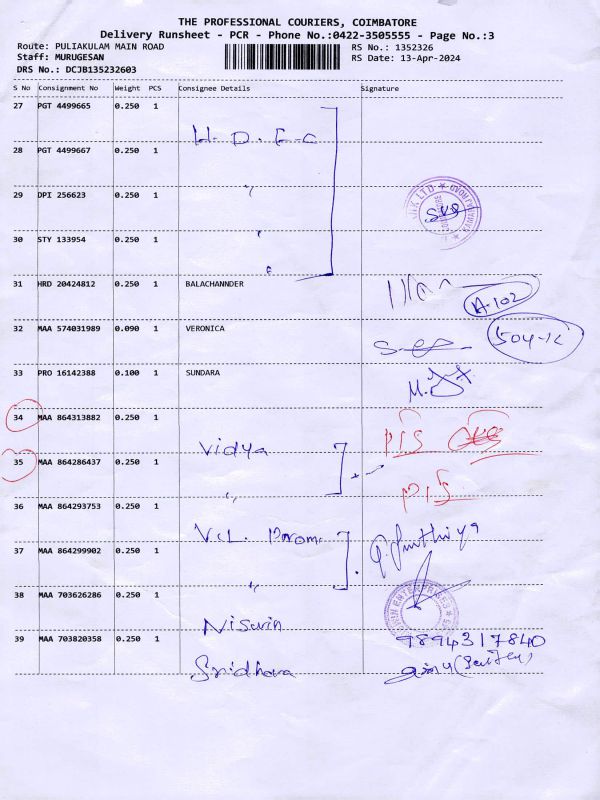 THE PROFESSIONAL COURIERS, COIMBATORE
Delivery Runsheet - PCR - Phone No.:0422-3505555 - Page No.:3
Route: PULIAKULAM MAIN ROAD
RS No.: 1352326
Staff: MURUGESAN
RS Date: 13-Apr-2024
DRS No.: DCJB135232603
S No Consignment No Weight PCS Consignee Details Signature
27 PGT 4499665 0.250 1
H.D.F.C
28 PGT 4499667 0.250 1
29 DPI 256623 0.250 1
30 STY 133954 0.250 1
31 HRD 20424812 0.250 1 BALACHANNDER
A-102
32 MAA 574031989 0.090 1 VERONICA
33 PRO 16142388 0.100 1 SUNDARA
34 MAA 864313882 0.250 1
Vidya
35 MAA 864286437 0.250 1
36 MAA 864293753 0.250 1
37 MAA 864299902 0.250 1
38 MAA 703626286 0.250 1
39 MAA 703820358 0.250 1
9894317840
Sridhara